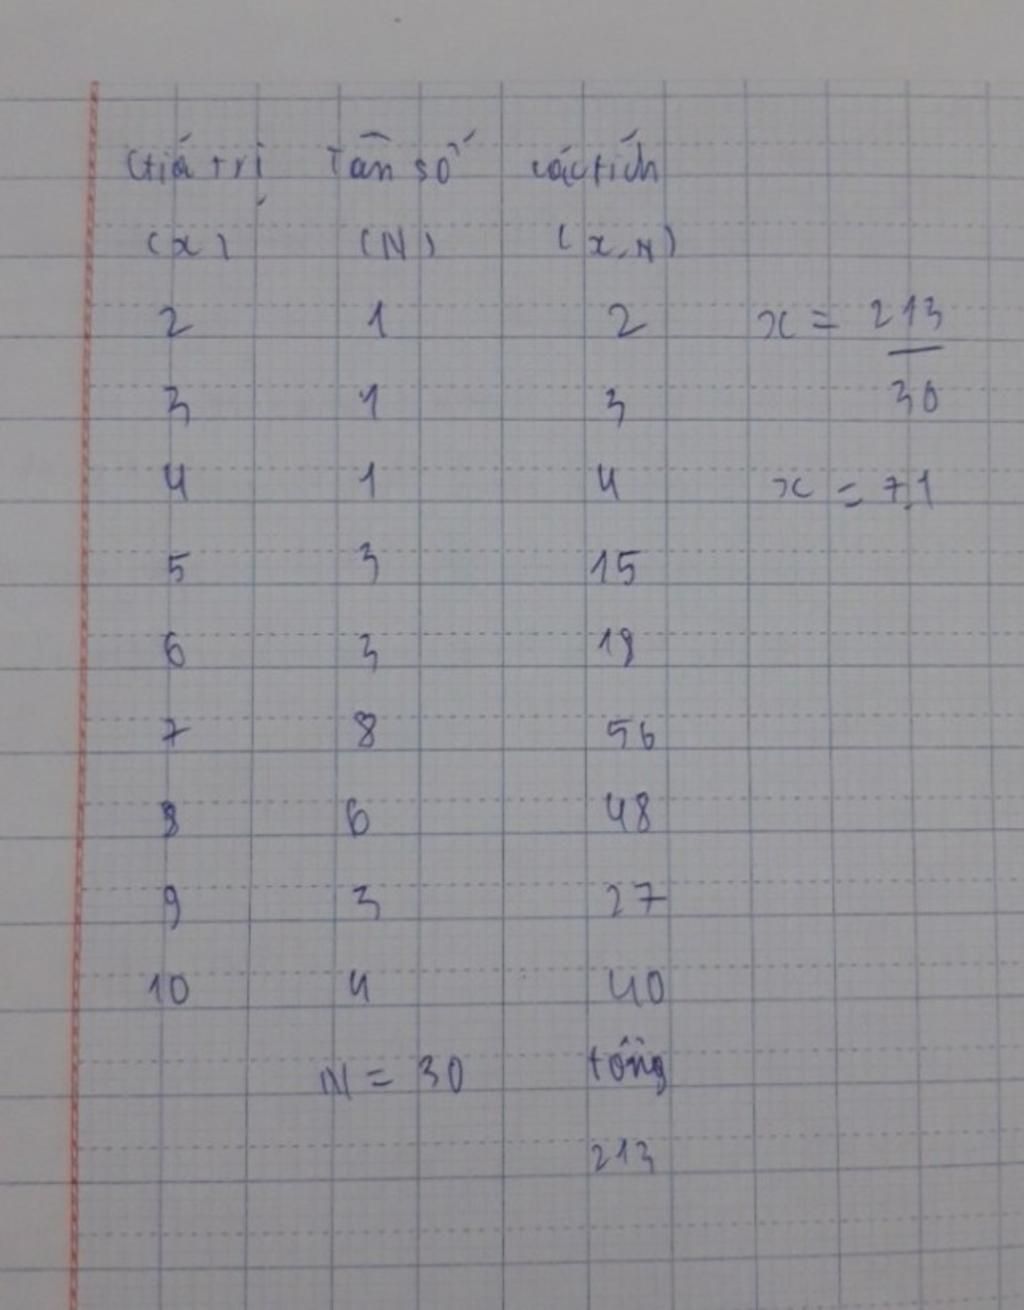 Giá trị Tần số các tích
(x) (N) (x.N)
2 1 2 x = 213/30
3 1 3
4 1 4 x = 7,1
5 3 15
6 3 18
7 8 56
8 6 48
9 3 27
10 4 40
N = 30 tổng
213